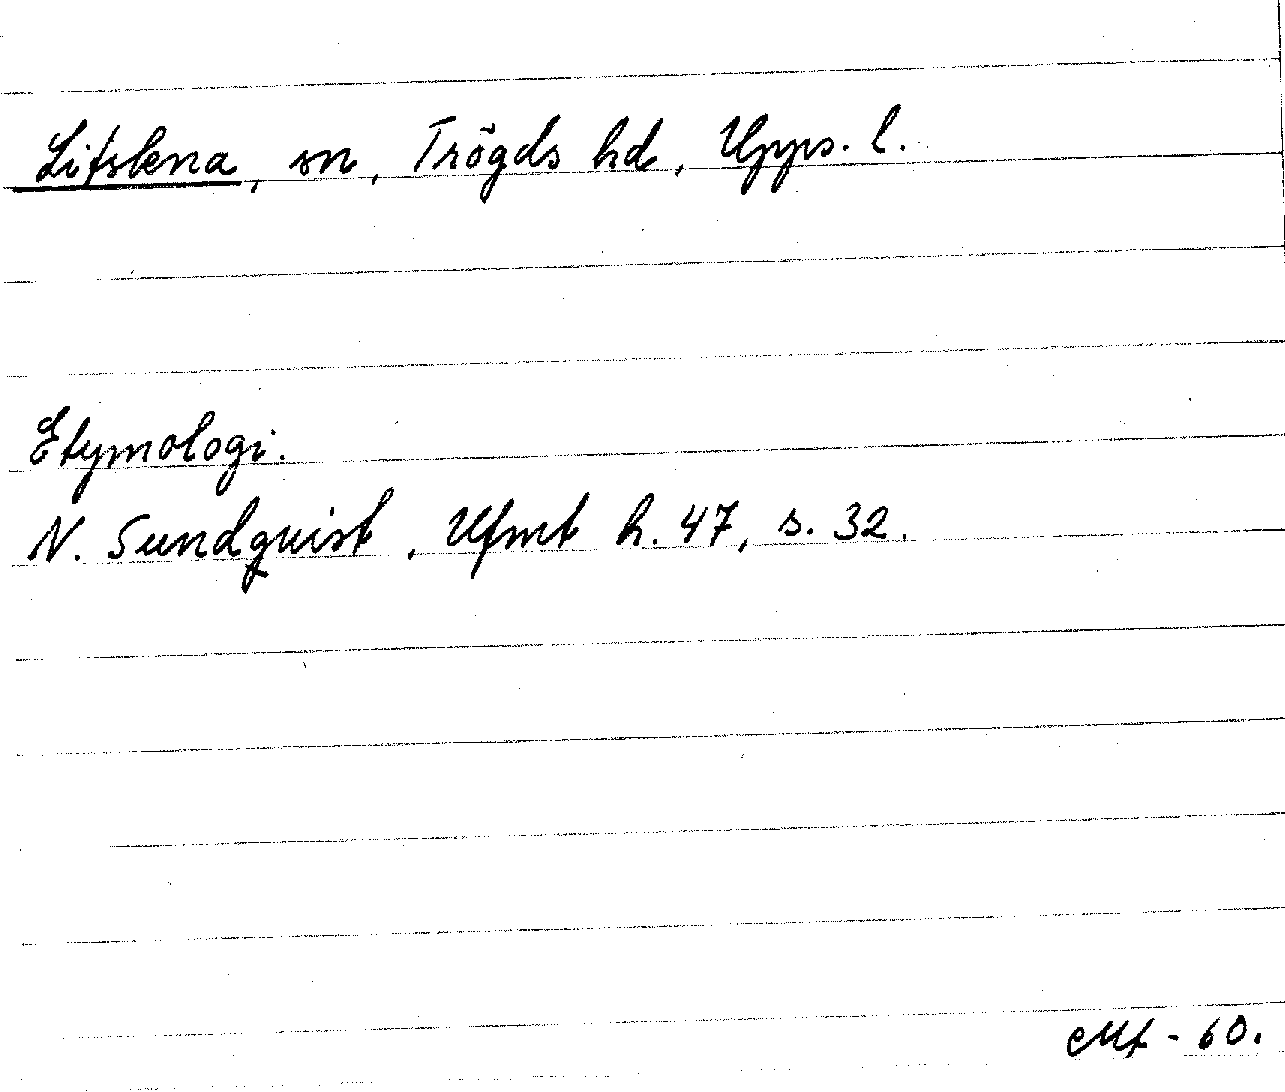 Litslena, sn, Trögds hd, Upps. l.
Etymologi.
N. Sundqvist, Ufmt h. 47, s. 32.
-60.